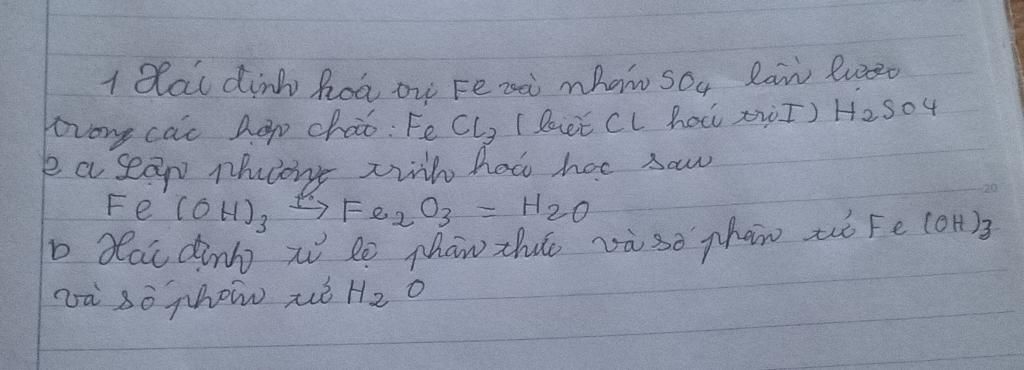 1 Xác định hoá trị Fe và nhóm SO4 lần lượt
trong các hợp chất: FeCl3 (biết Cl hoá trị I) H2SO4
2 a Lập phương trình hoá học sau
Fe(OH)3 t°→ Fe2O3 = H2O
b Xác định tỉ lệ phân thức và số phân tử Fe(OH)3
và số phân tử H2O
20